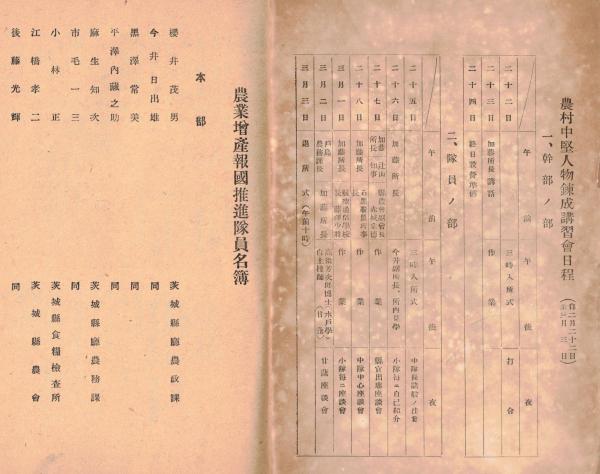 農村中堅人物鍊成講習會日程
（自二月二十二日
至三月三日）
一、幹部ノ部
午前
午後
夜
二十二日
三時入所式
打合
二十三日
加藤所長講話
作業
二十四日
終日設營準備
二、隊員ノ部
午前
午後
夜
二十五日
三時入所式
二十六日
加藤所長
今井副所長、所內見學
小隊每ニ自己紹介
二十七日
作業
縣官出席座談會
二十八日
加藤所長
作業
中隊中心座談會
三月一日
加藤所長
作業
小隊每ニ座談會
三月二日
戸島
農務課長
加藤所長
甘藷座談會
三月三日
退所式（午前十時）
農業增產報國推進隊員名簿
本部
櫻井茂男
茨城縣廳農政課
今井日出雄
同
黑澤常美
同
平澤內藏之助
同
麻生知次
茨城縣廳農務課
市毛一三
同
小林正
茨城縣食糧檢查所
江橋孝二
茨城縣農會
後藤光輝
同